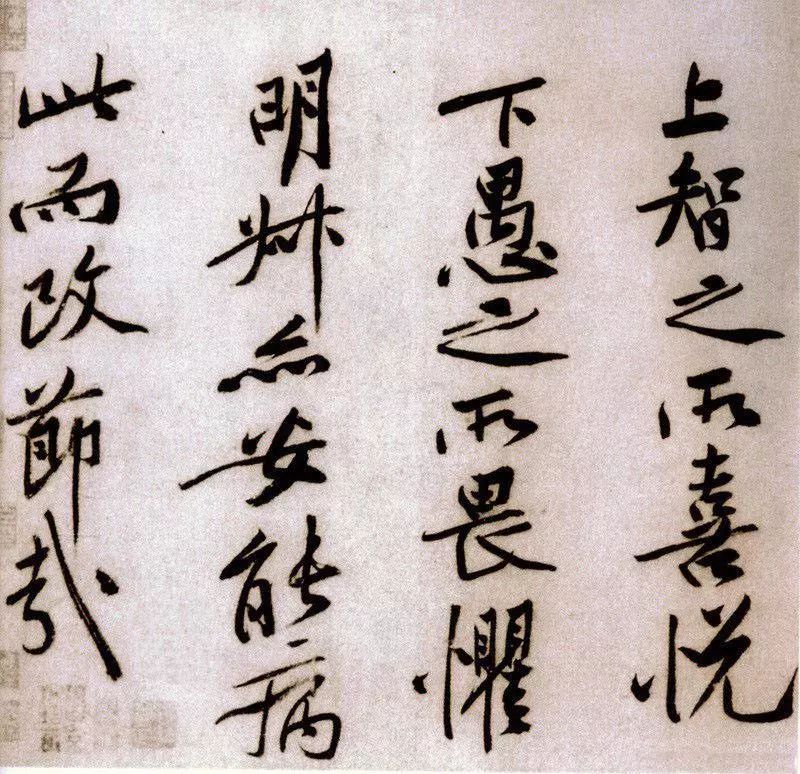 上智之所喜悦
下愚之所畏懼
明叔亦安能病
此而改節哉